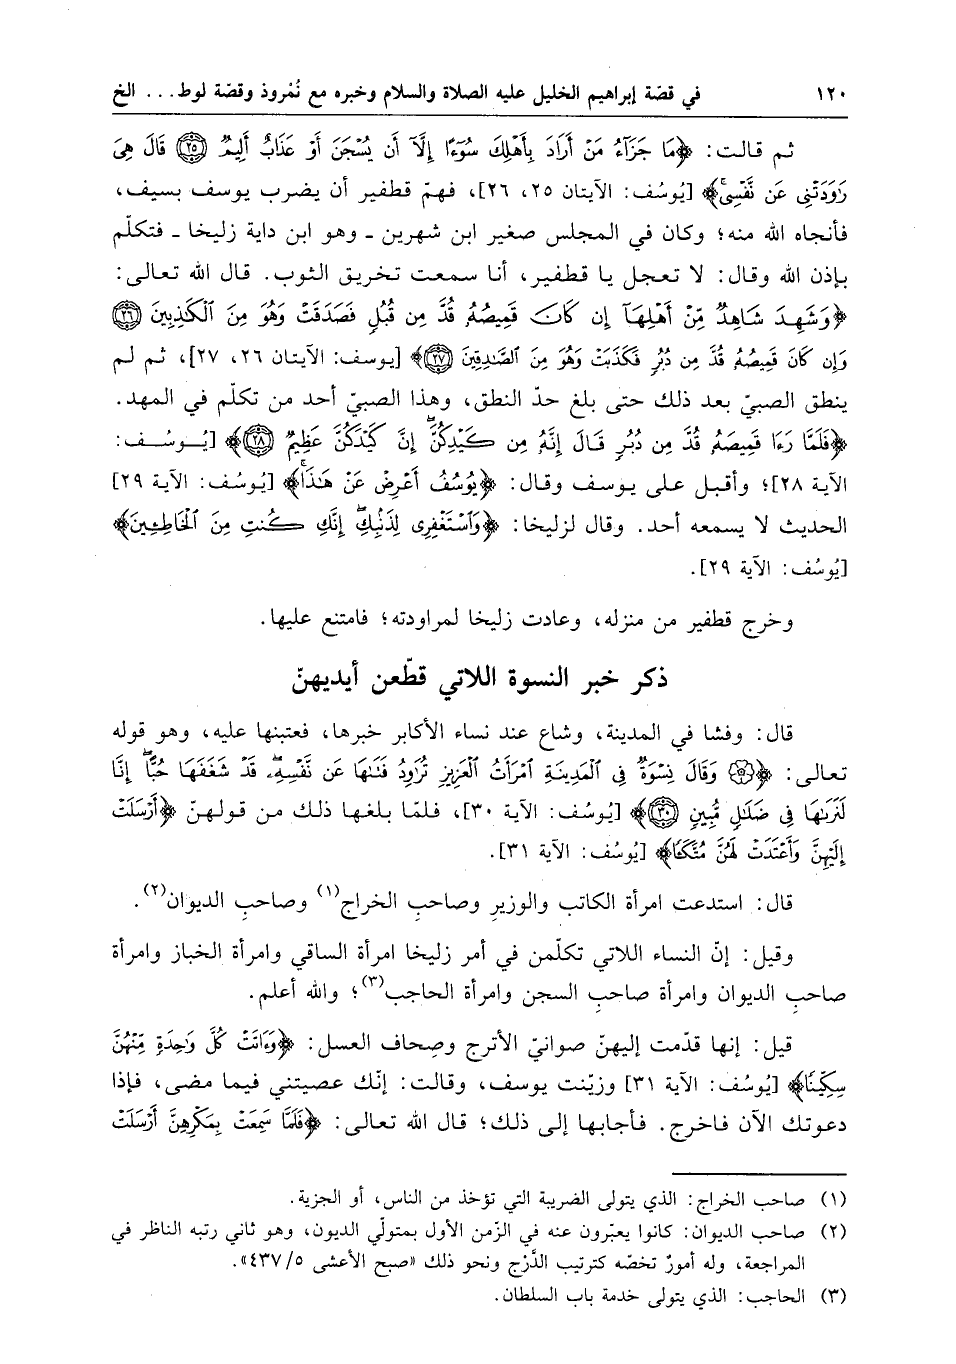 ١٢٠ في قصّة إبراهيم الخليل عليه الصلاة والسلام وخبره مع نُمْروذ وقصّة لوط... الخ
ثم قالت: ﴿مَا جَزَآءُ مَنْ أَرَادَ بِأَهْلِكَ سُوٓءًا إِلَّآ أَن يُسْجَنَ أَوْ عَذَابٌ أَلِيمٌ ٢٥ قَالَ هِىَ
رَٰوَدَتْنِى عَن نَّفْسِى﴾ [يُوسُف: الآيتان ٢٥، ٢٦]، فهمّ قطفير أن يضرب يوسف بسيف،
فأنجاه الله منه؛ وكان في المجلس صغير ابن شهرين ـ وهو ابن داية زليخا ـ فتكلّم
بإذن الله وقال: لا تعجل يا قطفير، أنا سمعت تخريق الثوب. قال الله تعالى:
﴿وَشَهِدَ شَاهِدٌ مِّنْ أَهْلِهَآ إِن كَانَ قَمِيصُهُۥ قُدَّ مِن قُبُلٍ فَصَدَقَتْ وَهُوَ مِنَ ٱلْكَٰذِبِينَ ٢٦
وَإِن كَانَ قَمِيصُهُۥ قُدَّ مِن دُبُرٍ فَكَذَبَتْ وَهُوَ مِنَ ٱلصَّٰدِقِينَ ٢٧﴾ [يوسف: الآيتان ٢٦، ٢٧]، ثم لم
ينطق الصبيّ بعد ذلك حتى بلغ حدّ النطق، وهذا الصبيّ أحد من تكلّم في المهد.
﴿فَلَمَّا رَءَا قَمِيصَهُۥ قُدَّ مِن دُبُرٍ قَالَ إِنَّهُۥ مِن كَيْدِكُنَّ ۖ إِنَّ كَيْدَكُنَّ عَظِيمٌ ٢٨﴾ [يُوسُف:
الآية ٢٨]؛ وأقبل على يوسف وقال: ﴿يُوسُفُ أَعْرِضْ عَنْ هَٰذَا ۚ﴾ [يُوسُف: الآية ٢٩]
الحديث لا يسمعه أحد. وقال لزليخا: ﴿وَٱسْتَغْفِرِى لِذَنۢبِكِ ۖ إِنَّكِ كُنتِ مِنَ ٱلْخَاطِـِٔينَ﴾
[يُوسُف: الآية ٢٩].
وخرج قطفير من منزله، وعادت زليخا لمراودته؛ فامتنع عليها.
ذكر خبر النسوة اللاتي قطّعن أيديهنّ
قال: وفشا في المدينة، وشاع عند نساء الأكابر خبرها، فعتبنها عليه، وهو قوله
تعالى: ﴿۞ وَقَالَ نِسْوَةٌ فِى ٱلْمَدِينَةِ ٱمْرَأَتُ ٱلْعَزِيزِ تُرَٰوِدُ فَتَىٰهَا عَن نَّفْسِهِۦ ۖ قَدْ شَغَفَهَا حُبًّا ۖ إِنَّا
لَنَرَىٰهَا فِى ضَلَٰلٍ مُّبِينٍ ٣٠﴾ [يُوسُف: الآية ٣٠]، فلمّا بلغها ذلك من قولهنّ ﴿أَرْسَلَتْ
إِلَيْهِنَّ وَأَعْتَدَتْ لَهُنَّ مُتَّكَـًٔا﴾ [يُوسُف: الآية ٣١].
قال: استدعت امرأة الكاتب والوزيرِ وصاحبِ الخراج(١) وصاحبِ الديوان(٢).
وقيل: إنّ النساء اللاتي تكلّمن في أمر زليخا امرأة الساقي وامرأة الخباز وامرأة
صاحبِ الديوان وامرأة صاحبِ السجن وامرأة الحاجب(٣)؛ والله أعلم.
قيل: إنها قدّمت إليهنّ صوانيّ الأترج وصحاف العسل: ﴿وَءَاتَتْ كُلَّ وَٰحِدَةٍ مِّنْهُنَّ
سِكِّينًا﴾ [يُوسُف: الآية ٣١] وزيّنت يوسف، وقالت: إنّك عصيتني فيما مضى، فإذا
دعوتك الآن فاخرج. فأجابها إلى ذلك؛ قال الله تعالى: ﴿فَلَمَّا سَمِعَتْ بِمَكْرِهِنَّ أَرْسَلَتْ
(١) صاحب الخراج: الذي يتولى الضريبة التي تؤخذ من الناس، أو الجزية.
(٢) صاحب الديوان: كانوا يعبّرون عنه في الزّمن الأول بمتولّي الديون، وهو ثاني رتبه الناظر في
المراجعة، وله أمورٌ تخصّه كترتيب الدَّرْج ونحو ذلك «صبح الأعشى ٥/ ٤٣٧».
(٣) الحاجب: الذي يتولى خدمة باب السلطان.